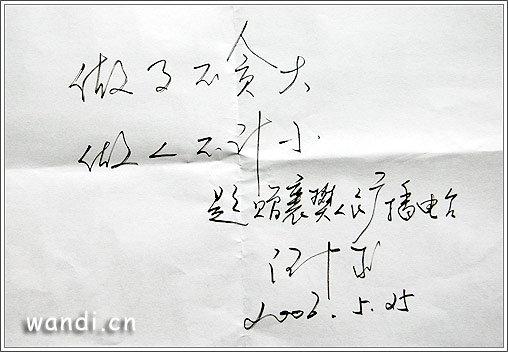 做事不贪大
做人不计小
题赠襄樊人民广播电台
汪中求
2006.5.25
wandi.cn